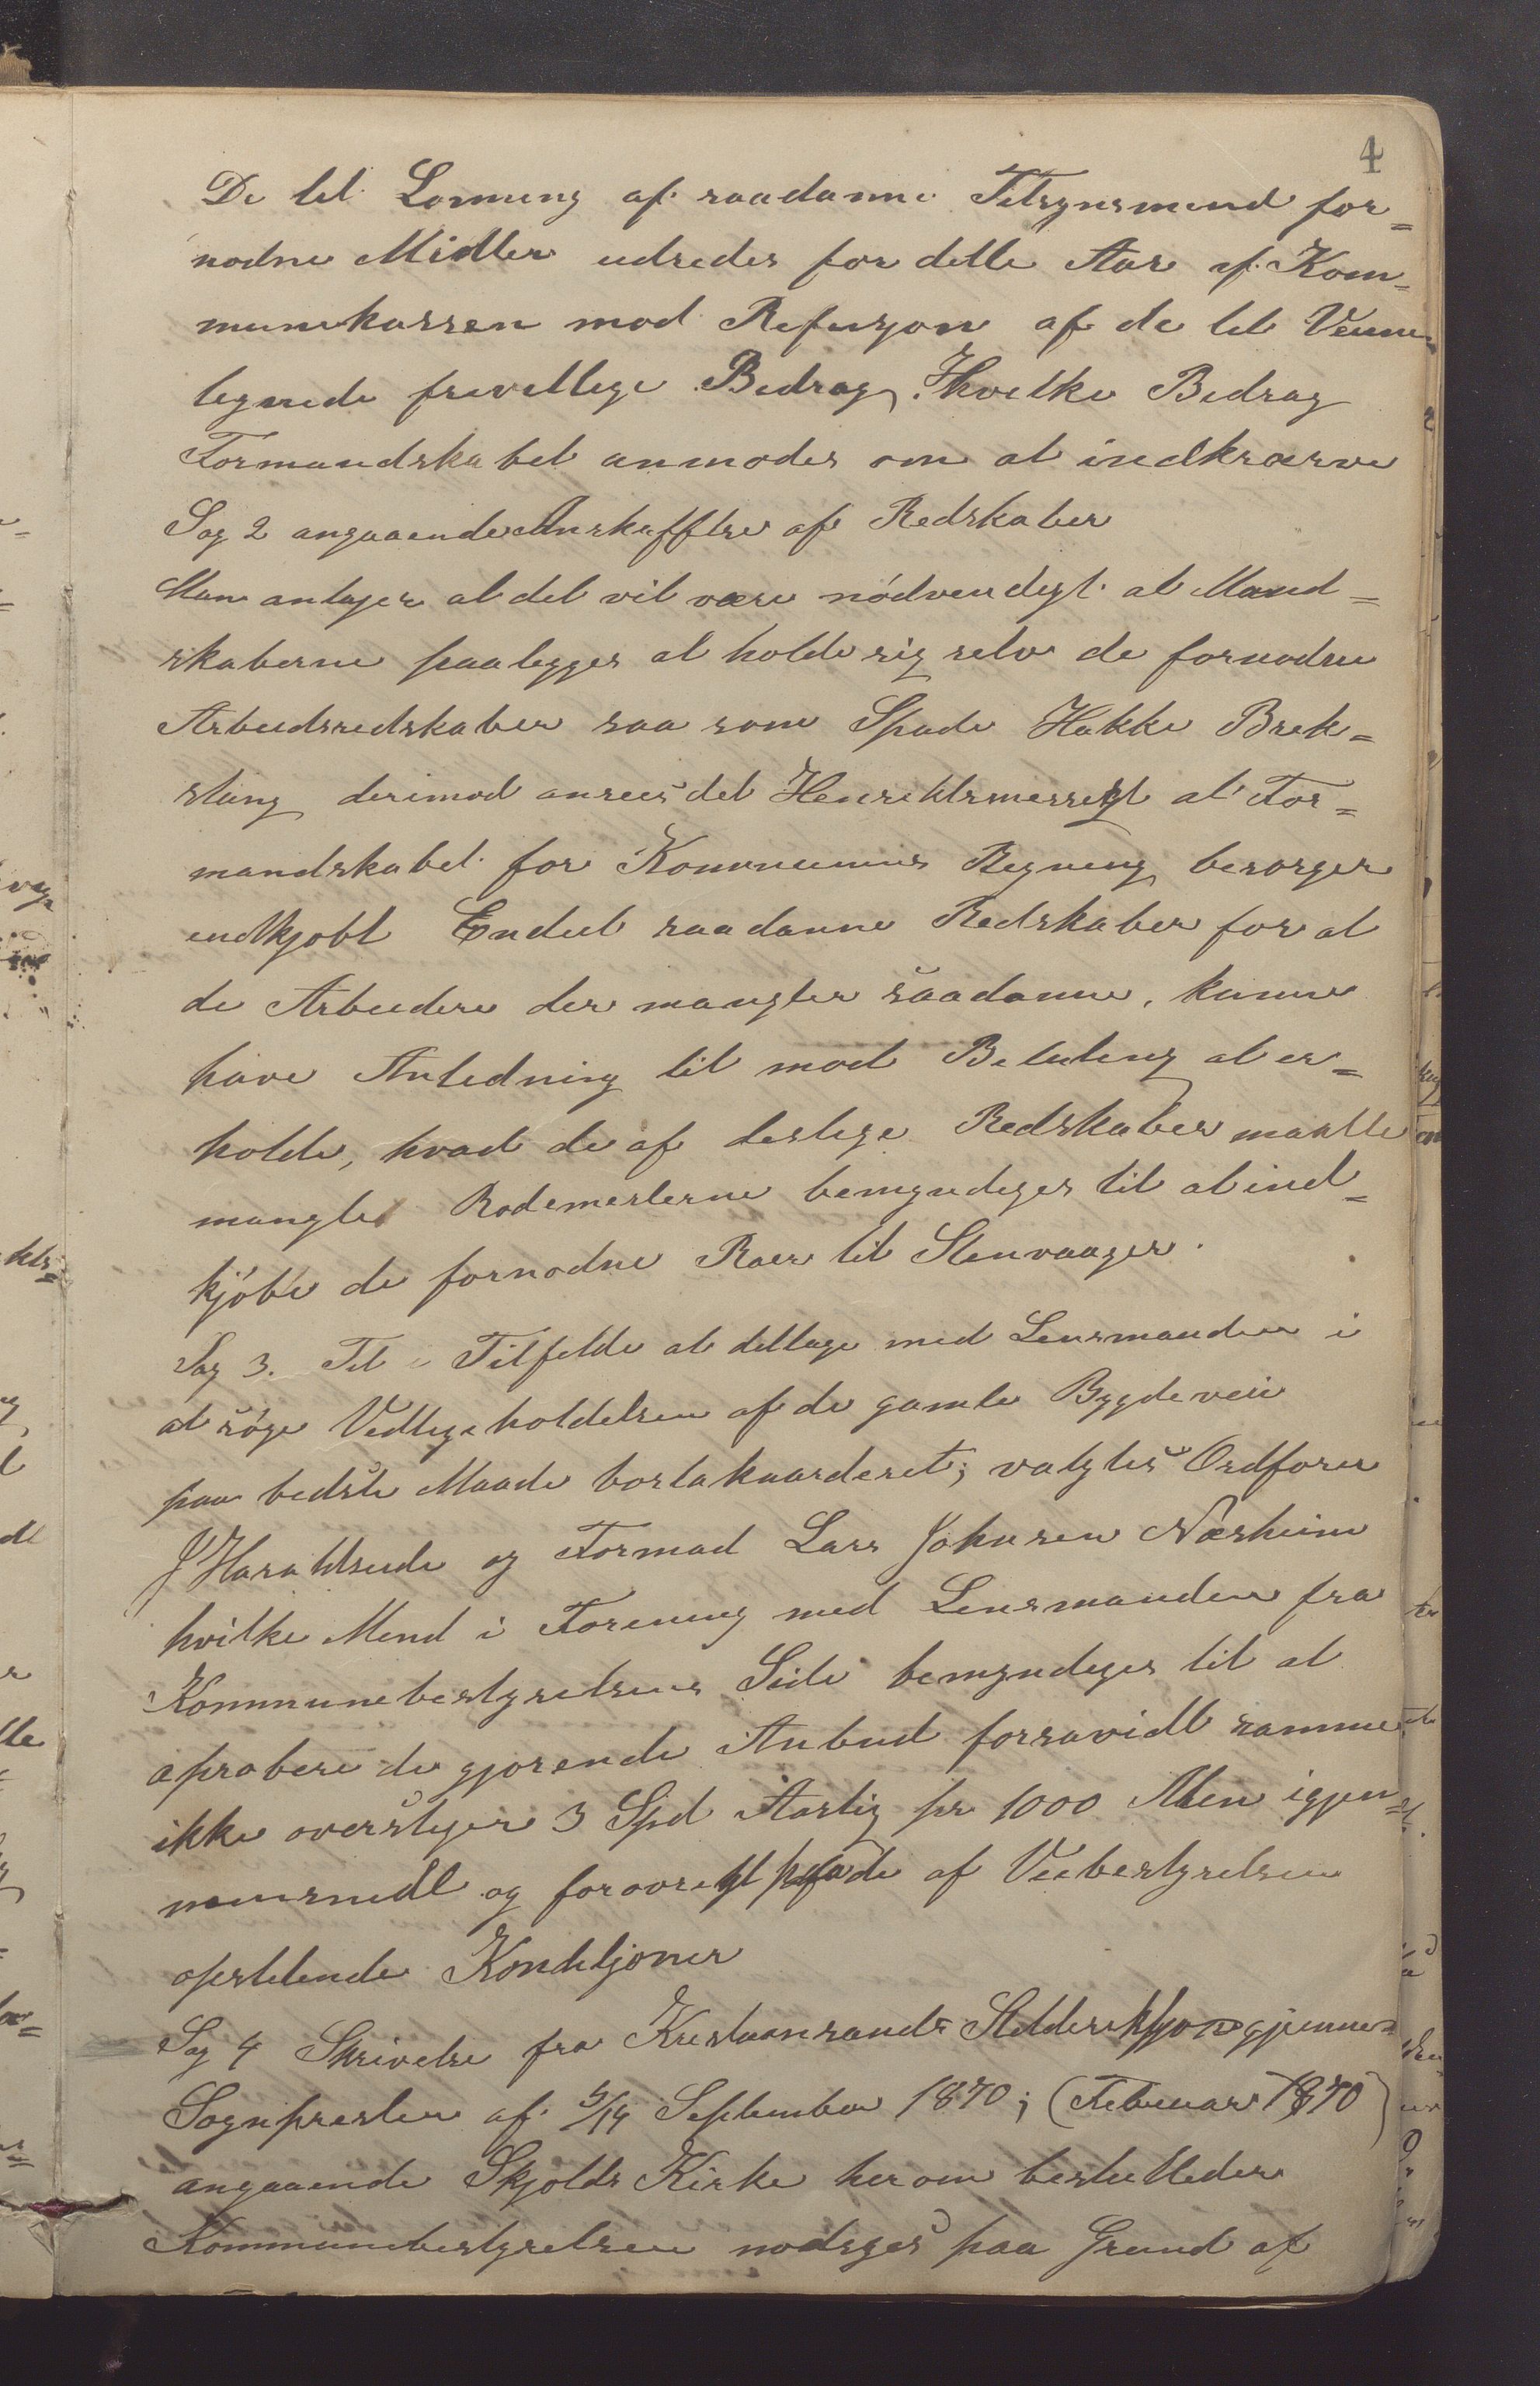 4
De til Lønning af saadanne Tilsynsmænd for=
nødne Midler udredes for dette Aar af Kom=
munekassen mod Refusjon af de til Veiene
tegnede frivillige Bidrag. Hvilke Bidrag
Formandskabet anmodes om at indkræve
Sag 2 angaaende Anskaffelse af Redskaber
Man antager at det vil være nødvendigt at Mand=
skaberne paalegges at holde sig selv de fornødne
Arbeidsredskaber saa som Spade Hakke Brek=
stang derimod ansees det Hensiktsmessigt at For=
mandskabet for Kommunens Regning besørger
indkjøbt Endeel saadanne Redskaber for at
de Arbeidere der mangler saadanne, kunne
have Anledning til mod Betaling at er=
holde, hvad de af deslige Redskaber maatte
mangle Rodemesterne bemyndiges til at ind=
kjøbe de fornødne Raer til Stenvaager.
Sag 3. Til i Tilfelde at deltage med Lensmanden i
at søge Vedligeholdelsen af de gamle Bygdeveie
paa bedste Maade bortakuarderet; valgtes Ordfører
J Haraldseide og Formad Lars Johnsen Næsheim
hvilke Mend i Forening med Lensmanden fra
Kommunebestyrelsens Side bemyndiges til at
aprobere de gjørende Anbud forsavidt samme
ikke overstiger 3 Spd Aarlig pr 1000 Alen igjen=
nemsnidt og forøvrigt paa de af Veibestyrelsen
opstillende Kondisjoner
Sag 4 Skrivelse fra Kristiansands Stiftdireksjon gjennem
Sognpresten af 5/14 September 1870; (Febuar 1870)
angaaende Skjolds Kirke herom besluttedes
Kommunebestyrelsen nødsges paa Grund af